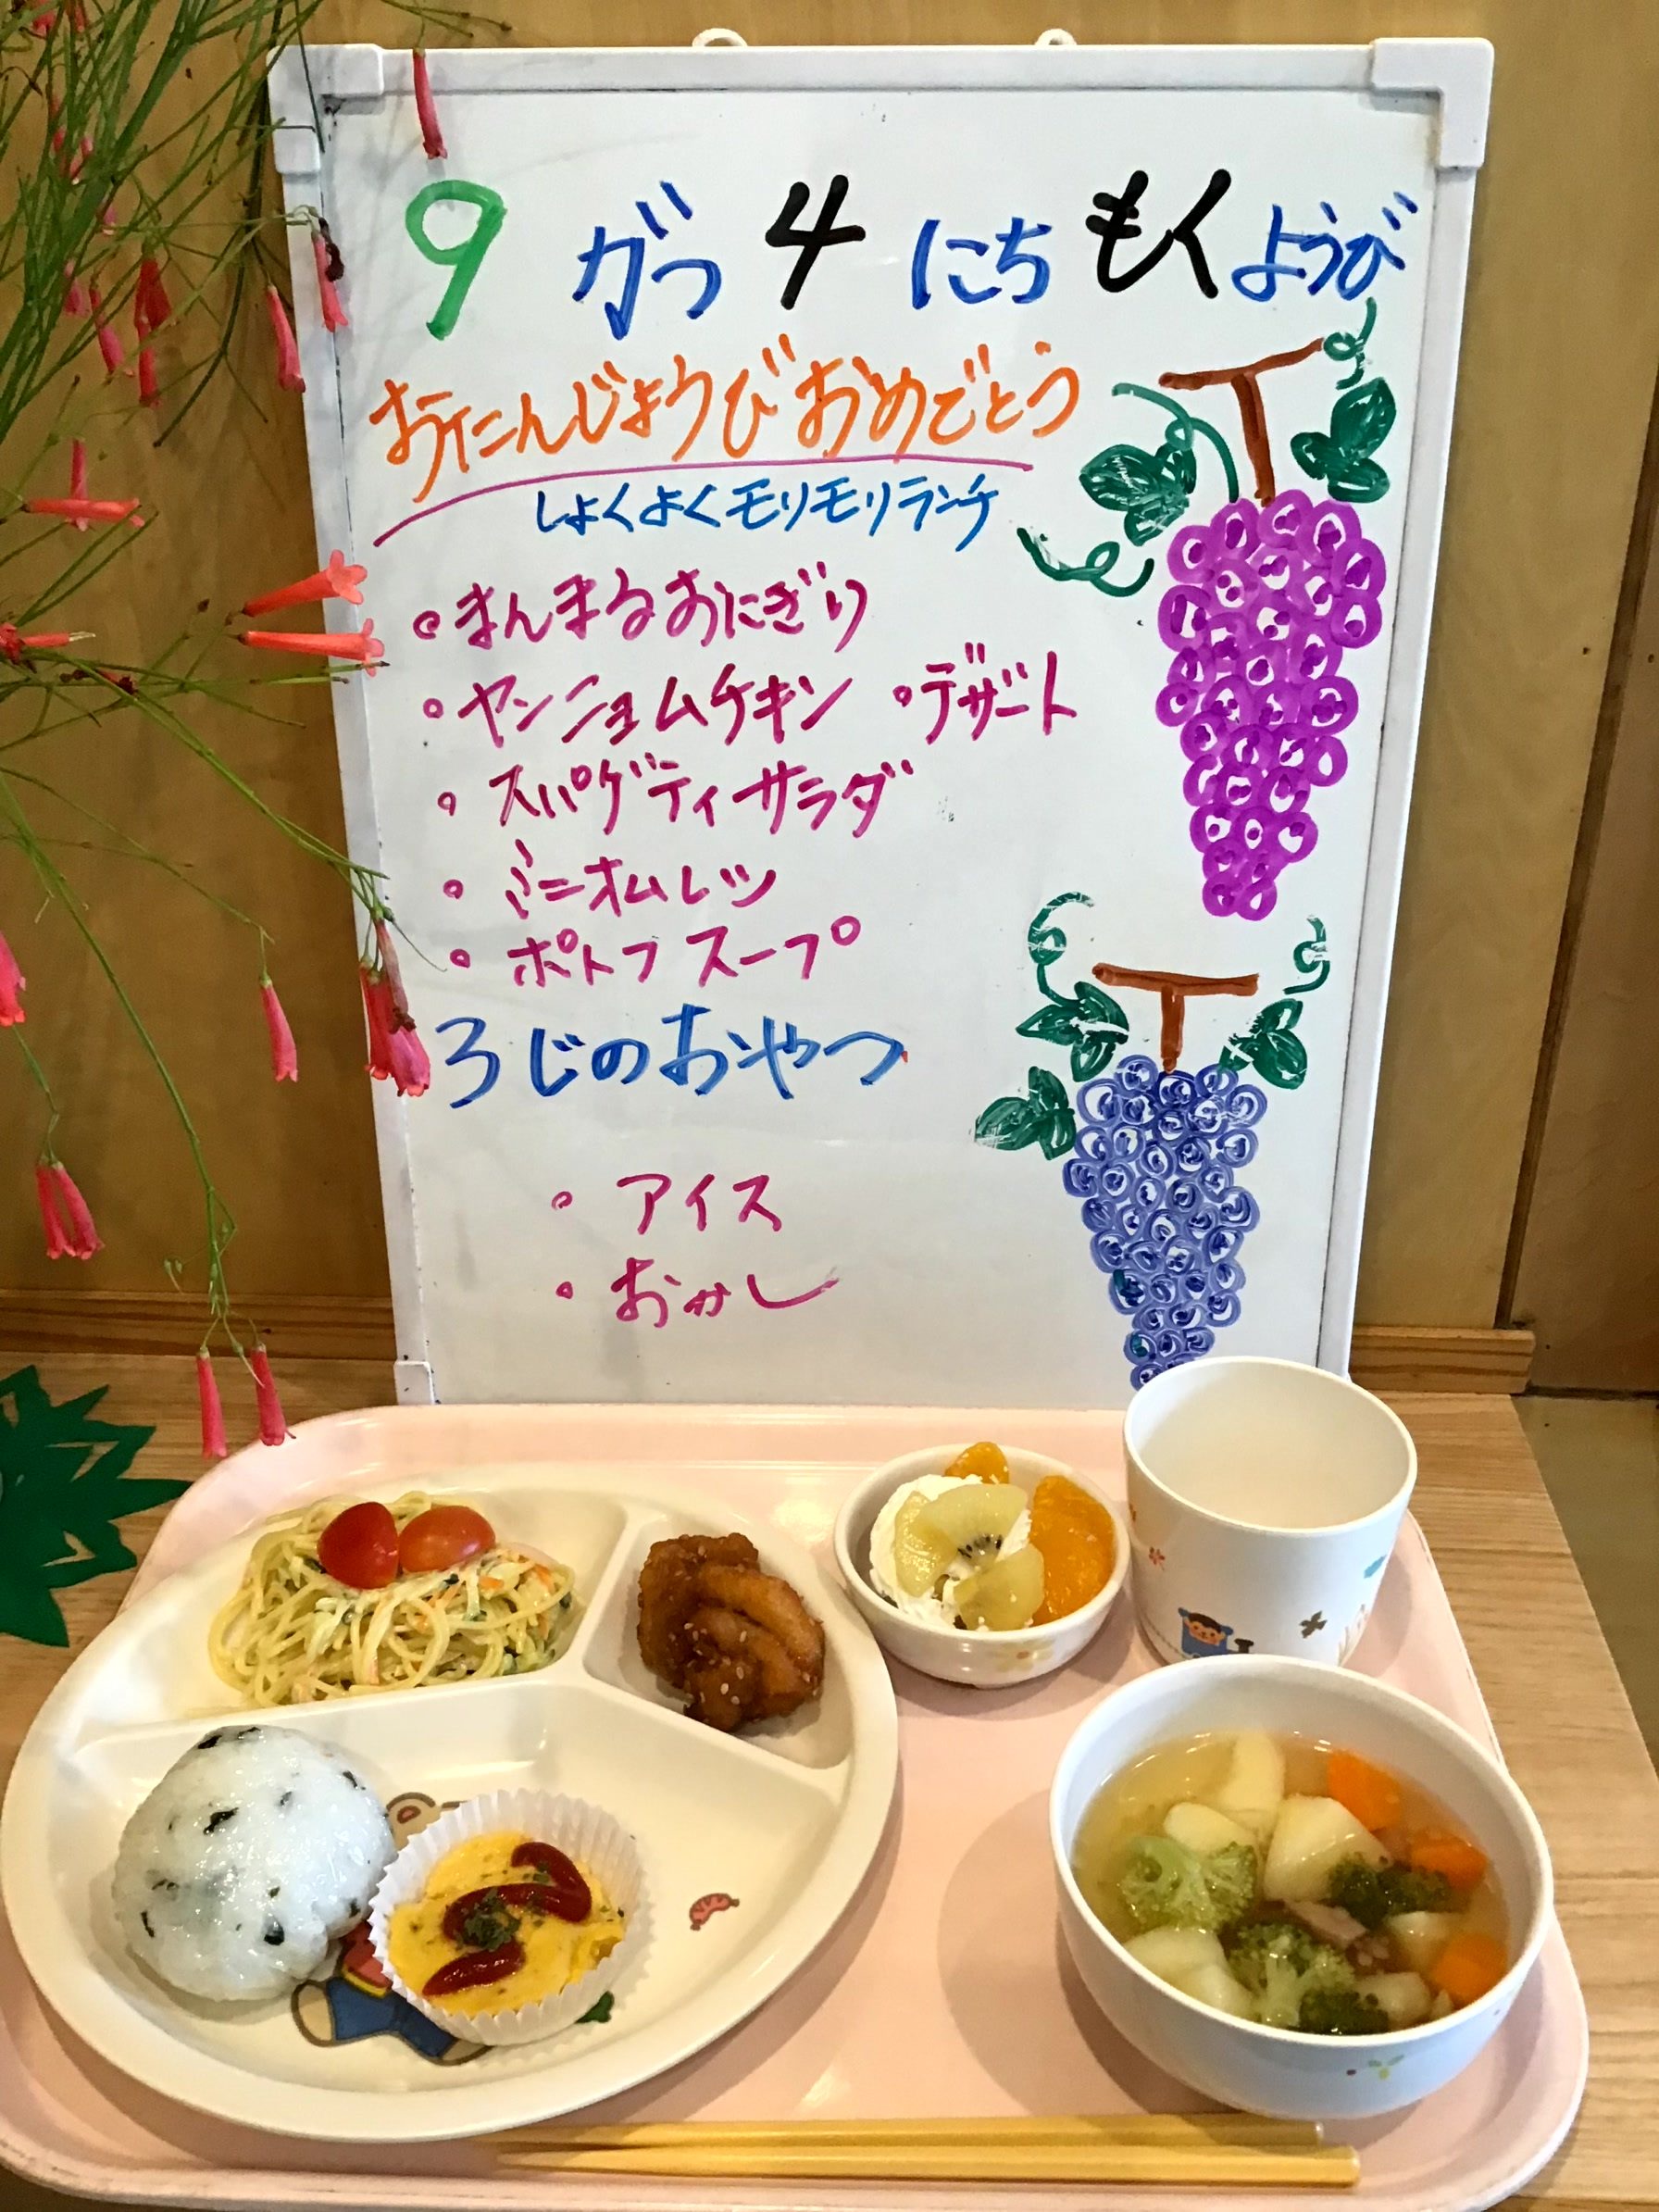 9 がつ 4 にち もくようび
おたんじょうびおめでとう
しょくよくモリモリランチ
・まんまるおにぎり
・ヤンニョムチキン ・デザート
・スパゲティサラダ
・ミニオムレツ
・ポトフスープ
3じのおやつ
・アイス
・おかし